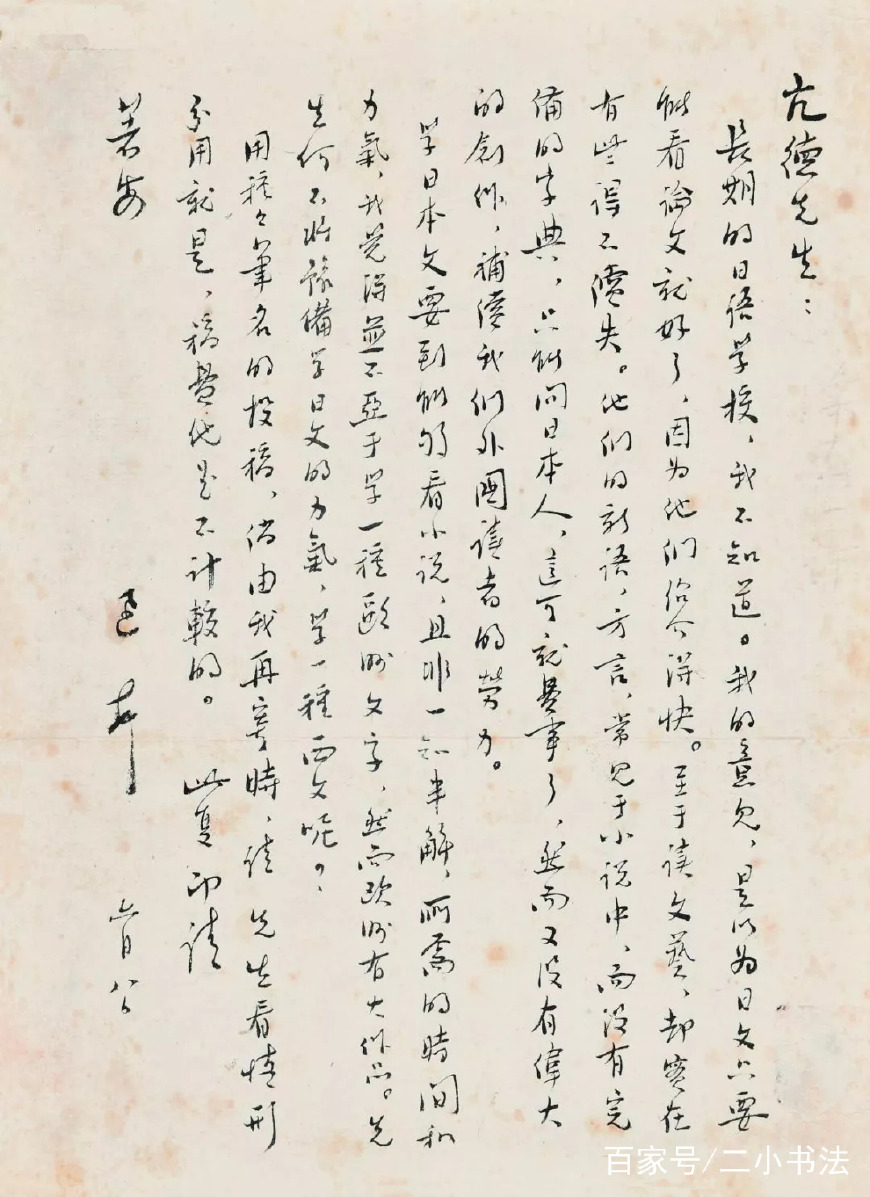 亢德先生：
長期的日语学校，我不知道。我的意见，是以为日文只要
能看論文就好了，因为他们绍介得快。至于读文藝，却实在
有些得不偿失。他们的新语，方言，常见于小说中，而没有完
備的字典，只能问日本人，這可就费事了，然而又没有偉大
的創作，補償我们外國读者的劳力。
学日本文要到能够看小说，且非一知半解，所需的時间和
力氣，我觉得並不亞于学一種歐洲文字，然而欧洲有大作品。先
生何不将豫備学日文的力氣，学一種西文呢？
用種々筆名的投稿，倘由我再寄時，请 先生看情形
分用就是，稿费他是不计較的。 此复即请
著安
迅 上 六月八日
百家号/二小书法